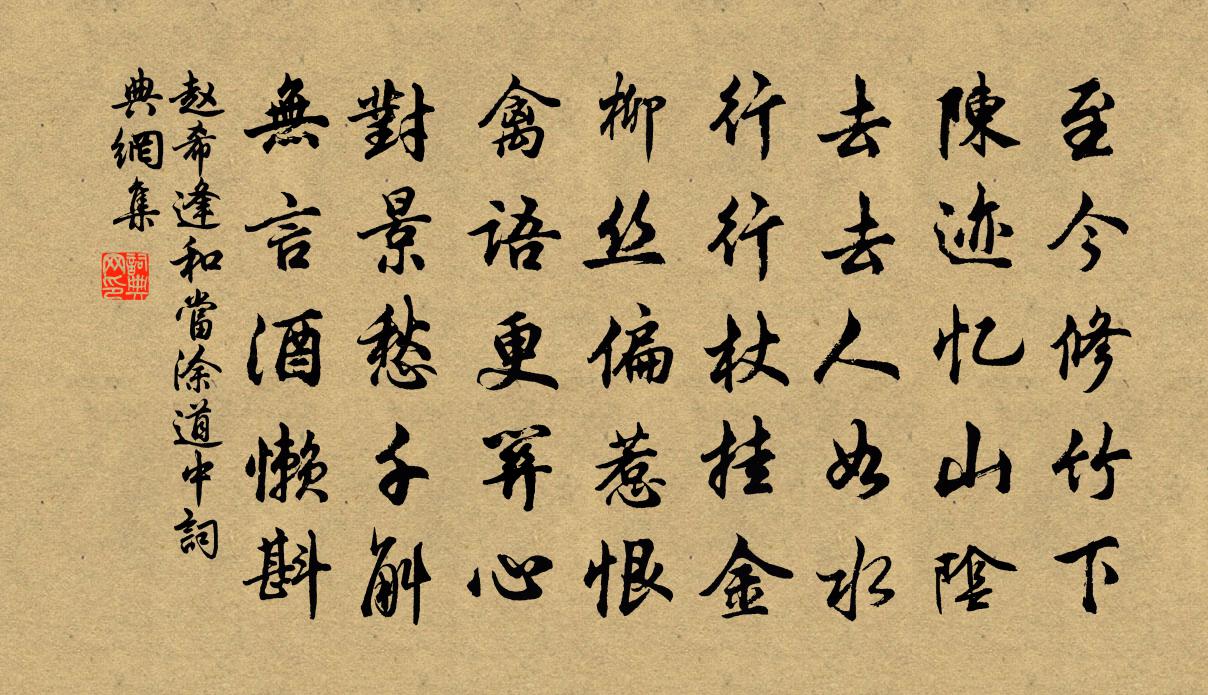 至今修竹下
陳迹忆山陰
去去人如水
行行杖挂金
柳丝偏惹恨
禽语更關心
對景愁千斛
無言酒懒斟
赵希逢和當涂道中詞
典網集
詞典
网印